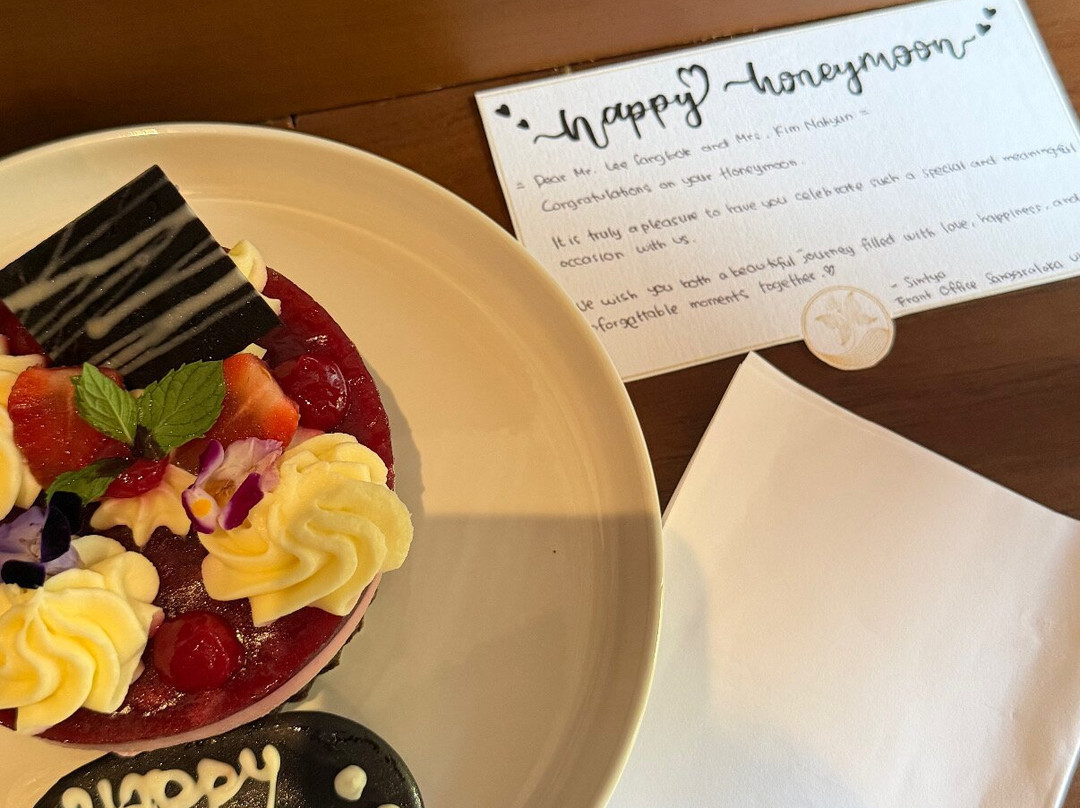 happy honeymoon
= Dear Mr. Lee Sangbok and Mrs. Kim Nahyun =
Congratulations on your Honeymoon.
It is truly a pleasure to have you celebrate such a special and meaningful
occasion with us.
we wish you both a beautiful journey filled with love, happiness, and
forgettable moments together.
- Sintya
Front Office Sanggraloka
Happy